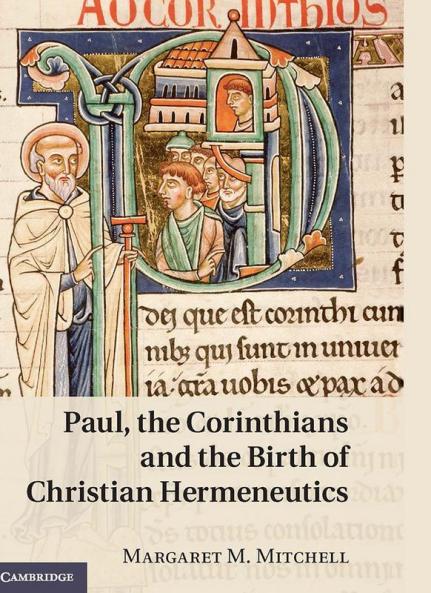 AD COR INTHIOS
dei que est corinthi cum
nibʒ qui sunt in uniuer
gra uobis & pax ad
Paul, the Corinthians
and the Birth of
Christian Hermeneutics
ds totius consolatione
MARGARET M. MITCHELL
CAMBRIDGE